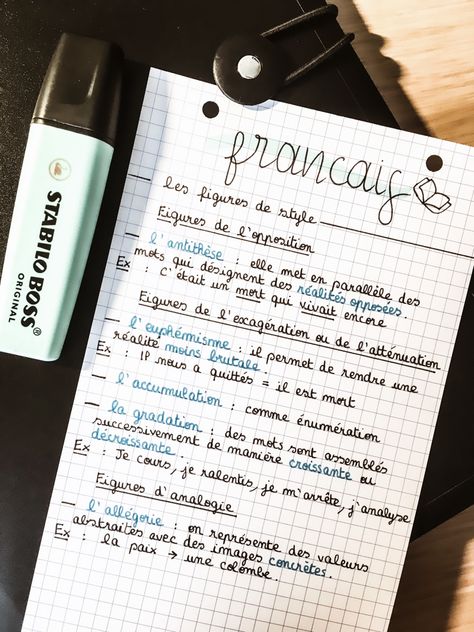 STABILO BOSS
ORIGINAL
francais
les figures de style
Figures de l'opposition
l'antithèse : elle met en parallèle des
mots qui désignent des réalités opposées.
Ex : C'était un mort qui vivait encore
Figures de l'exagération ou de l'atténuation
– l'euphémisme : il permet de rendre une
réalité moins brutale.
Ex : IP nous a quittés = il est mort
– l'accumulation : comme énumération
– la gradation : des mots sont assemblés
successivement de manière croissante ou
décroissante.
Ex : Je cours, je ralentis, je m'arrête, j'analyse
Figures d'analogie
– l'allégorie : on représente des valeurs
abstraites avec des images concrètes.
Ex : la paix → une colombe.